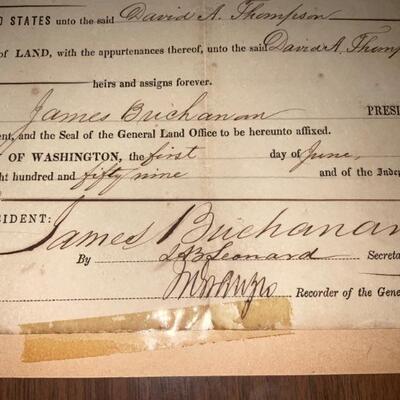 D STATES unto the said David A. Thompson
of LAND, with the appurtenances thereof, unto the said David A. Thomp
heirs and assigns forever.
James Buchanan PRESI
ent, and the Seal of the General Land Office to be hereunto affixed.
Y OF WASHINGTON, the first day of June,
ght hundred and fifty nine and of the Indep
SIDENT: James Buchanan
By Leonard Secreta
Recorder of the Gene